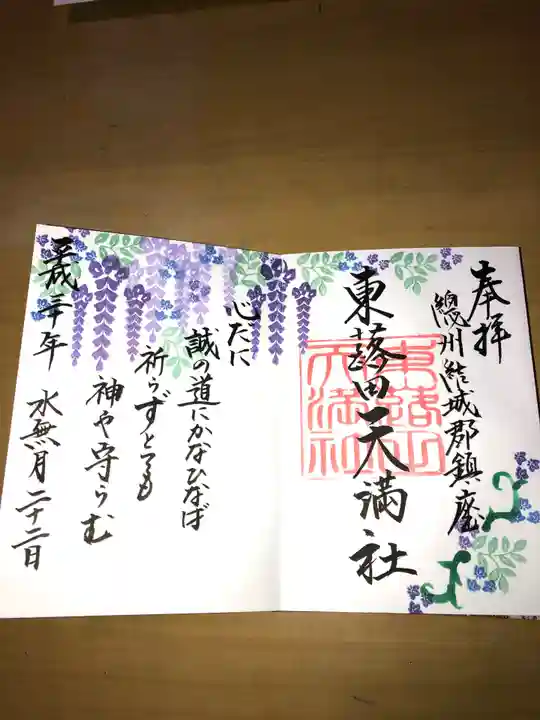 奉拝
總州結城郡鎮座
東蕗田天満社
東路田
天満社
心だに
誠の道にかなひなば
祈らずとても
神や守らむ
平成三十年 水無月二十二日